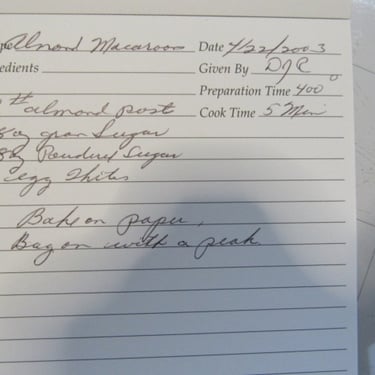 Almond Macaroon Date 4/22/2003
edients Given By DJC
Preparation Time 400
# almond post Cook Time 5 Min
8 oz gran Sugar
8oz Powdered Sugar
egg Whites
Bake on paper,
Bag on with a peak